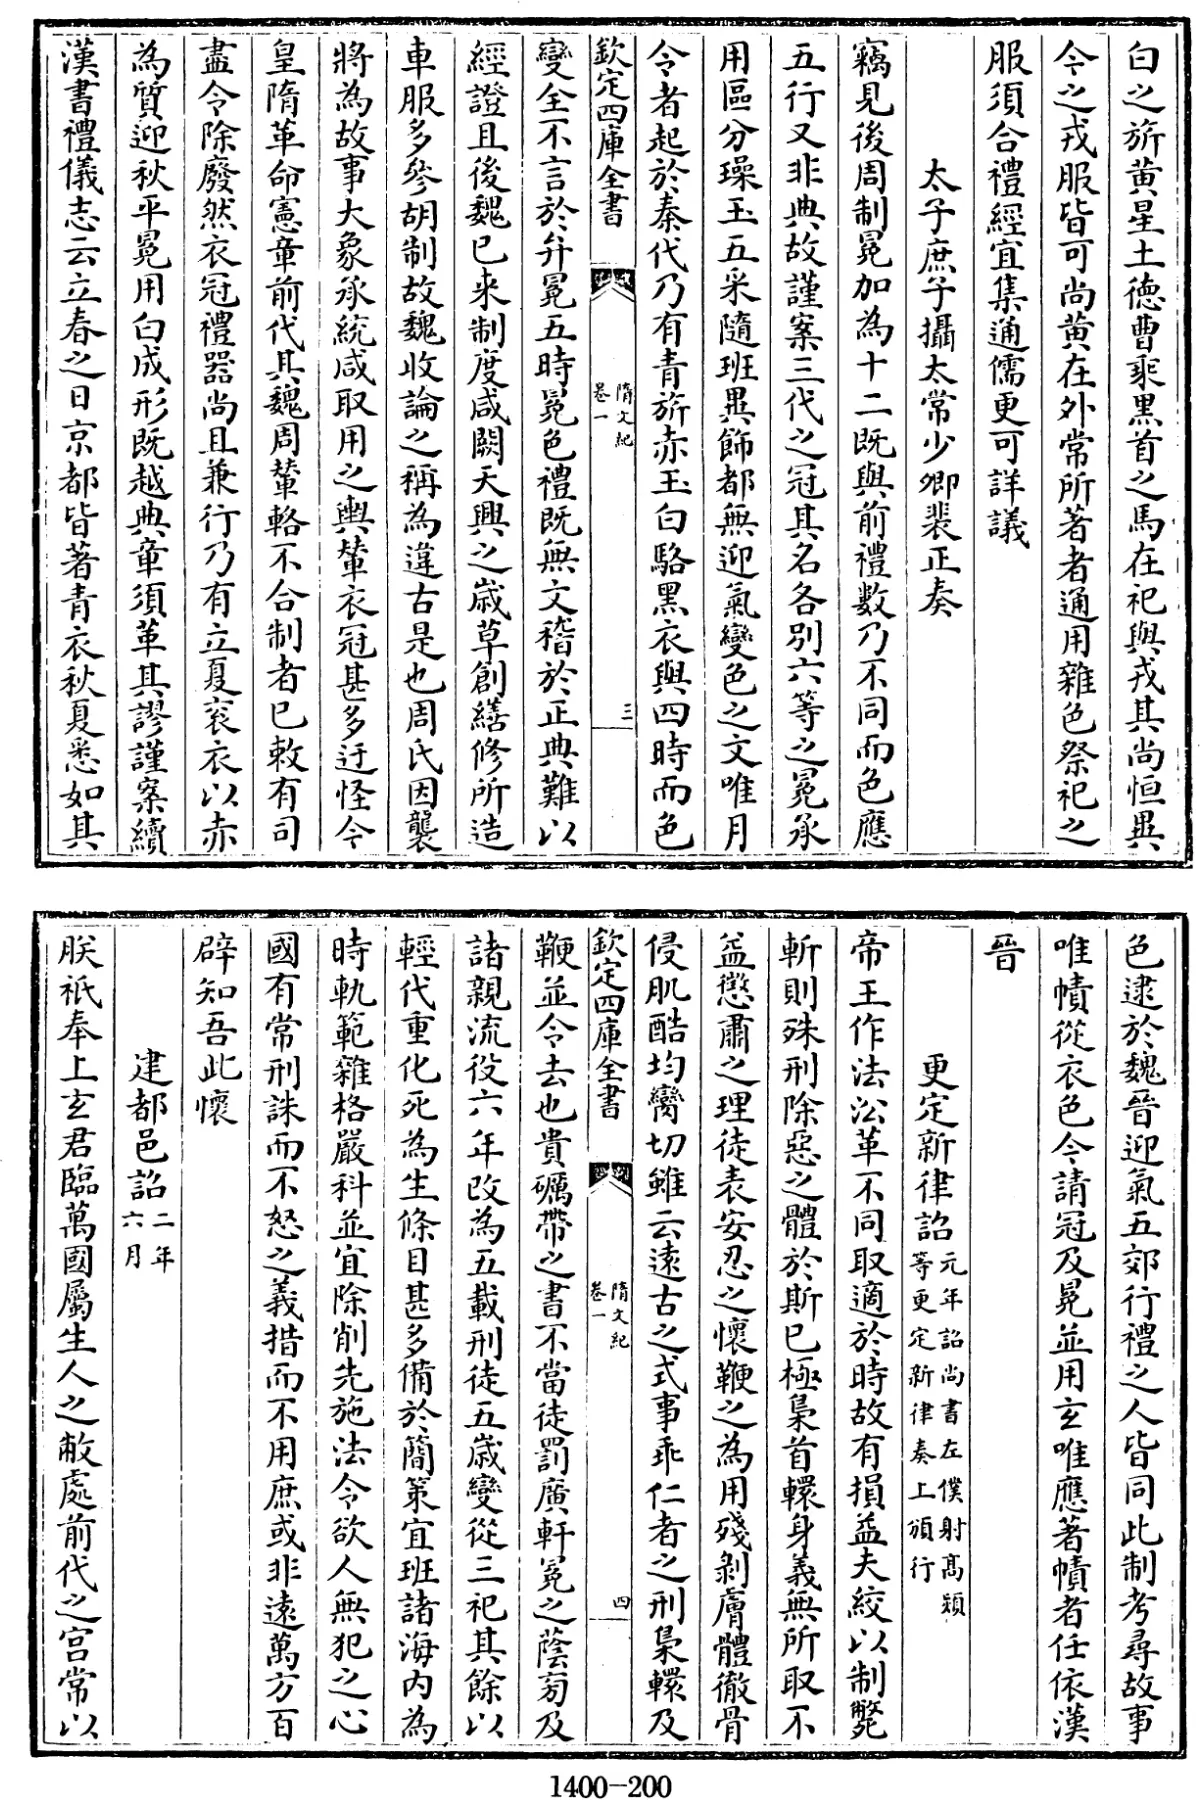 白之旂黄星土徳曹乘黒首之馬在祀與戎其尚恒異
今之戎服皆可尚黄在外常所著者通用雜色祭祀之
服須合禮經宜集通儒更可詳議
太子庶子攝太常少卿裴正奏
竊見後周制冕加為十二既與前禮數乃不同而色應
五行又非典故謹案三代之冠其名各別六等之冕承
用區分璪玉五采隨班異飾都無迎氣變色之文唯月
令者起於秦代乃有青旂赤玉白駱黑衣與四時而色
欽定四庫全書
隋文紀
卷一
三
變全不言於弁冕五時冕色禮既無文稽於正典難以
經證且後魏已来制度咸闕天興之歲草創繕修所造
車服多參胡制故魏收論之稱為違古是也周氏因襲
將為故事大象承統咸取用之輿輦衣冠甚多迂怪今
皇隋革命憲章前代其魏周輦輅不合制者已敕有司
盡令除廢然衣冠禮器尚且兼行乃有立夏衮衣以赤
為質迎秋平冕用白成形既越典章須革其謬謹案續
漢書禮儀志云立春之日京都皆著青衣秋夏悉如其
色逮於魏晉迎氣五郊行禮之人皆同此制考尋故事
唯幘從衣色今請冠及冕並用玄唯應著幘者任依漢
晉
更定新律詔元年詔尚書左僕射髙熲
等更定新律奏上頒行
帝王作法沿革不同取適於時故有損益夫絞以制斃
斬則殊刑除惡之體於斯已極梟首轘身義無所取不
益懲肅之理徒表安忍之懷鞭之為用殘剝膚體徹骨
侵肌酷均臠切雖云遠古之式事乖仁者之刑梟轘及
欽定四庫全書
隋文紀
卷一
四
鞭並令去也貴礪帶之書不當徒罰廣軒冕之蔭旁及
諸親流役六年改為五載刑徒五歲變從三祀其餘以
輕代重化死為生條目甚多備於簡策宜班諸海内為
時軌範雜格嚴科並宜除削先施法令欲人無犯之心
國有常刑誅而不怒之義措而不用庶或非遠萬方百
辟知吾此懷
建都邑詔二年
六月
朕祇奉上玄君臨萬國屬生人之敝處前代之宫常以
1400-200